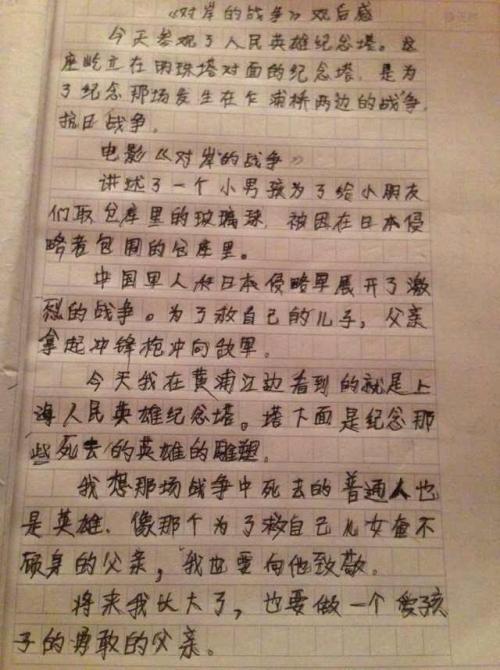 《对岸的战争》观后感
今天参观了人民英雄纪念塔。这
座屹立在明珠塔对面的纪念塔,是为
了纪念那场发生在乍浦桥两边的战争,
抗日战争。
电影《对岸的战争》
讲述了一个小男孩为了给小朋友
们取仓库里的玻璃球,被困在日本侵
略者包围的仓库里。
中国军人对日本侵略军展开了激
烈的战争。为了救自己的儿子,父亲
拿起冲锋枪冲向敌军。
今天我在黄浦江边看到的就是上
海人民英雄纪念塔。塔下面是纪念那
些死去的英雄的雕塑。
我想那场战争中死去的普通人也
是英雄.像那个为了救自己儿女奋不
顾身的父亲,我也要向他致敬。
将来我长大了,也要做一个爱孩
子的勇敢的父亲。